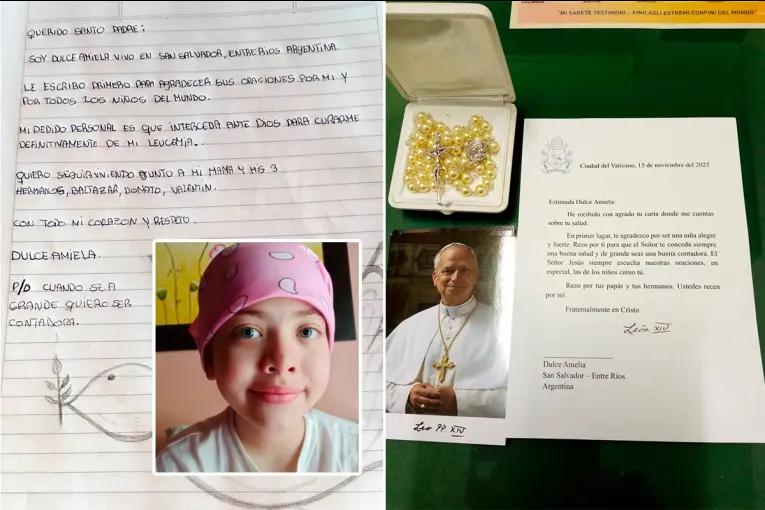 QUERIDO SANTO PADRE:
SOY DULCE AMIELA VIVO EN SAN SALVADOR, ENTRE RIOS ARGENTINA.
LE ESCRIBO PRIMERO PARA AGRADECER SUS ORACIONES POR MI Y
POR TODOS LOS NIÑOS DEL MUNDO.
MI PEDIDO PERSONAL ES QUE INTERCEDA ANTE DIOS PARA CURARME
DEFINITIVAMENTE DE MI LEUCEMIA.
QUIERO SEGUIR VIVIENDO JUNTO A MI MAMA Y MIS 3
HERMANOS, BALTAZAR, DONATO, VALENTIN.
CON TODO MI CORAZON Y RESPETO.
DULCE AMIELA.
P/D CUANDO SEA
GRANDE QUIERO SER
CONTADORA.
"MI SARETE TESTIMONI... FINO AGLI ESTREMI CONFINI DEL MONDO"
Ciudad del Vaticano, 15 de noviembre del 2025
Estimada Dulce Amiela:
He recibido con agrado tu carta donde me cuentas
sobre tu salud.
En primer lugar, te agradezco por ser una niña alegre
y fuerte. Rezo por ti para que el Señor te conceda siempre
una buena salud y de grande seas una buena contadora. El
Señor Jesús siempre escucha nuestras oraciones, en
especial, las de los niños como tú.
Rezo por tus papás y tus hermanos. Ustedes recen
por mí.
Fraternalmente en Cristo
León XIV
Dulce Amelia
San Salvador – Entre Ríos
Argentina
Leo PP. XIV